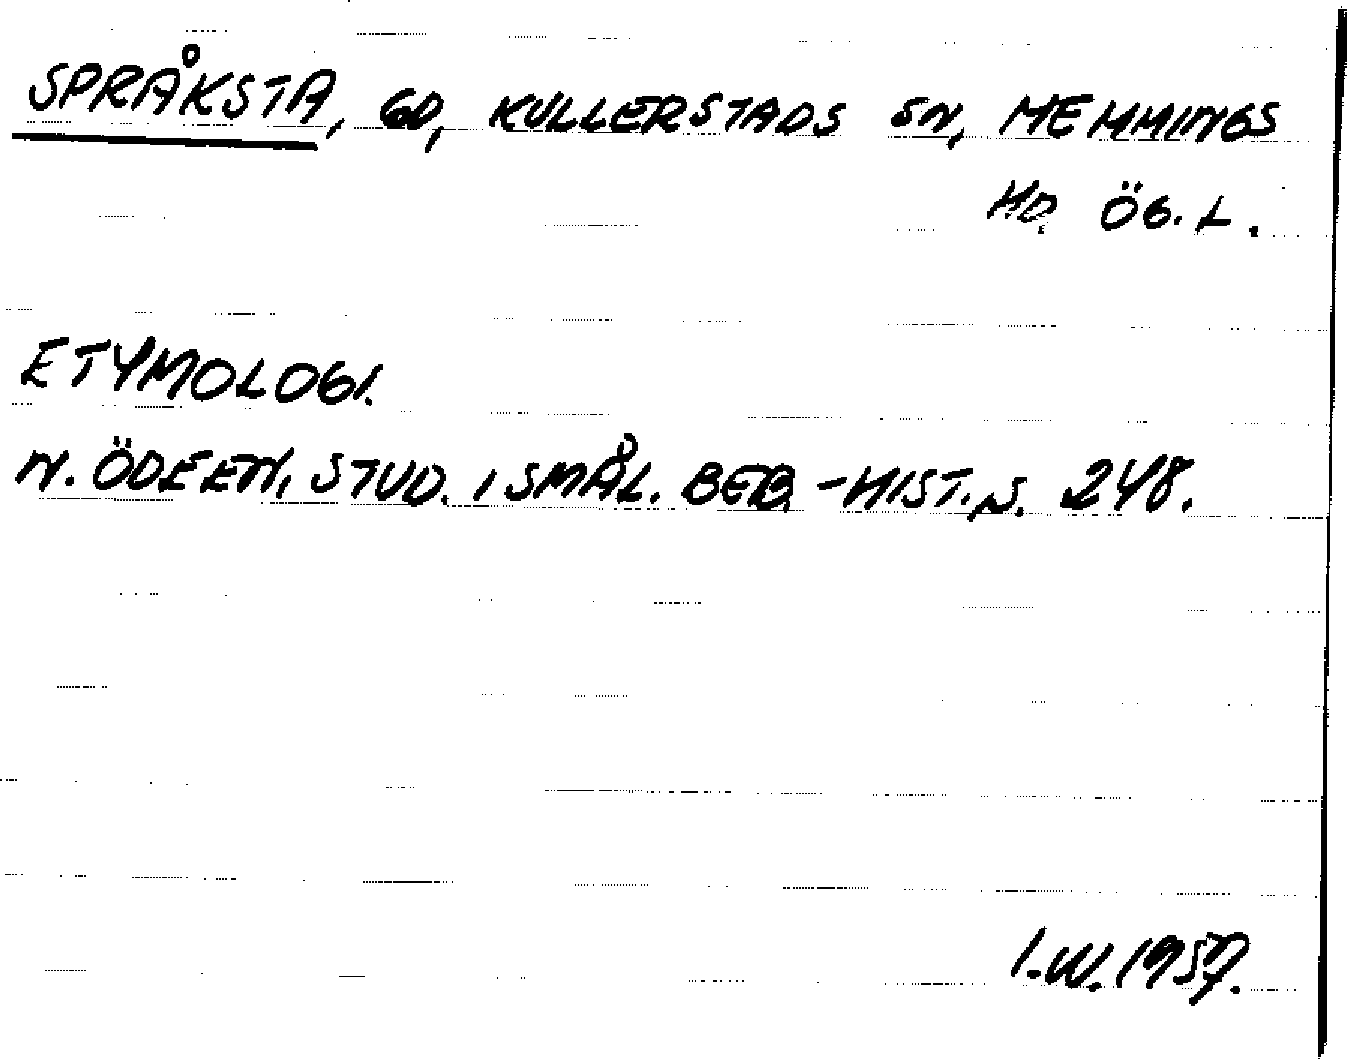 SPRÅKSTA, GD, KULLERSTADS SN, MEMMINGS
HD. ÖG. L.
ETYMOLOGI.
N. ÖDEEN, STUD. I SMÅL. BEB.-HIST., S. 248.
I.W. 1957.